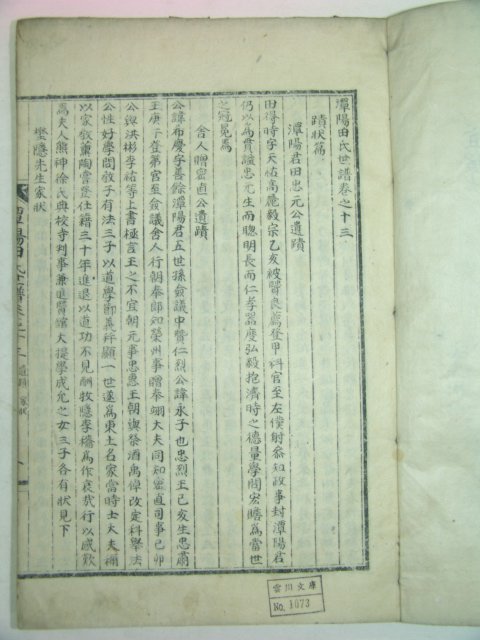 潭陽田氏世譜卷之十三
蹟狀篇
潭陽君田忠元公遺蹟
田得時字天佑高麗毅宗乙亥被賢良薦登甲科官至左僕射叅知政事封潭陽君
仍以爲貫諡忠元生而聰明長而仁孝器度弘毅抱濟時之德量學問宏瞻爲當世
之冠冕焉
舍人贈密直公遺蹟
公諱希慶字善餘潭陽君五世孫僉議中贊仁烈公諱永子也忠烈王己亥生忠肅
王庚 登第官至僉議舍人行朝奉郞知榮州事贈奉翊大夫同知密直司事己卯
公與洪彬李祐等上書極言王之不宜朝元事忠惠王朝與祭酒禹倬改定科擧法
公性好學問敎子有法三子以道學節義幷顯一世遂爲東土名家當時士大夫稱
以家敎薰陶嘗登仕籍三十年進退以道功不見酬牧隱李穡爲作哀 行以感歎
焉夫人熊神徐氏典校寺判事兼進賢館大提學成允之女三子各有狀見下
壄隱先生家狀
潭陽田氏世譜卷之十三
雲川文庫
No. 1073